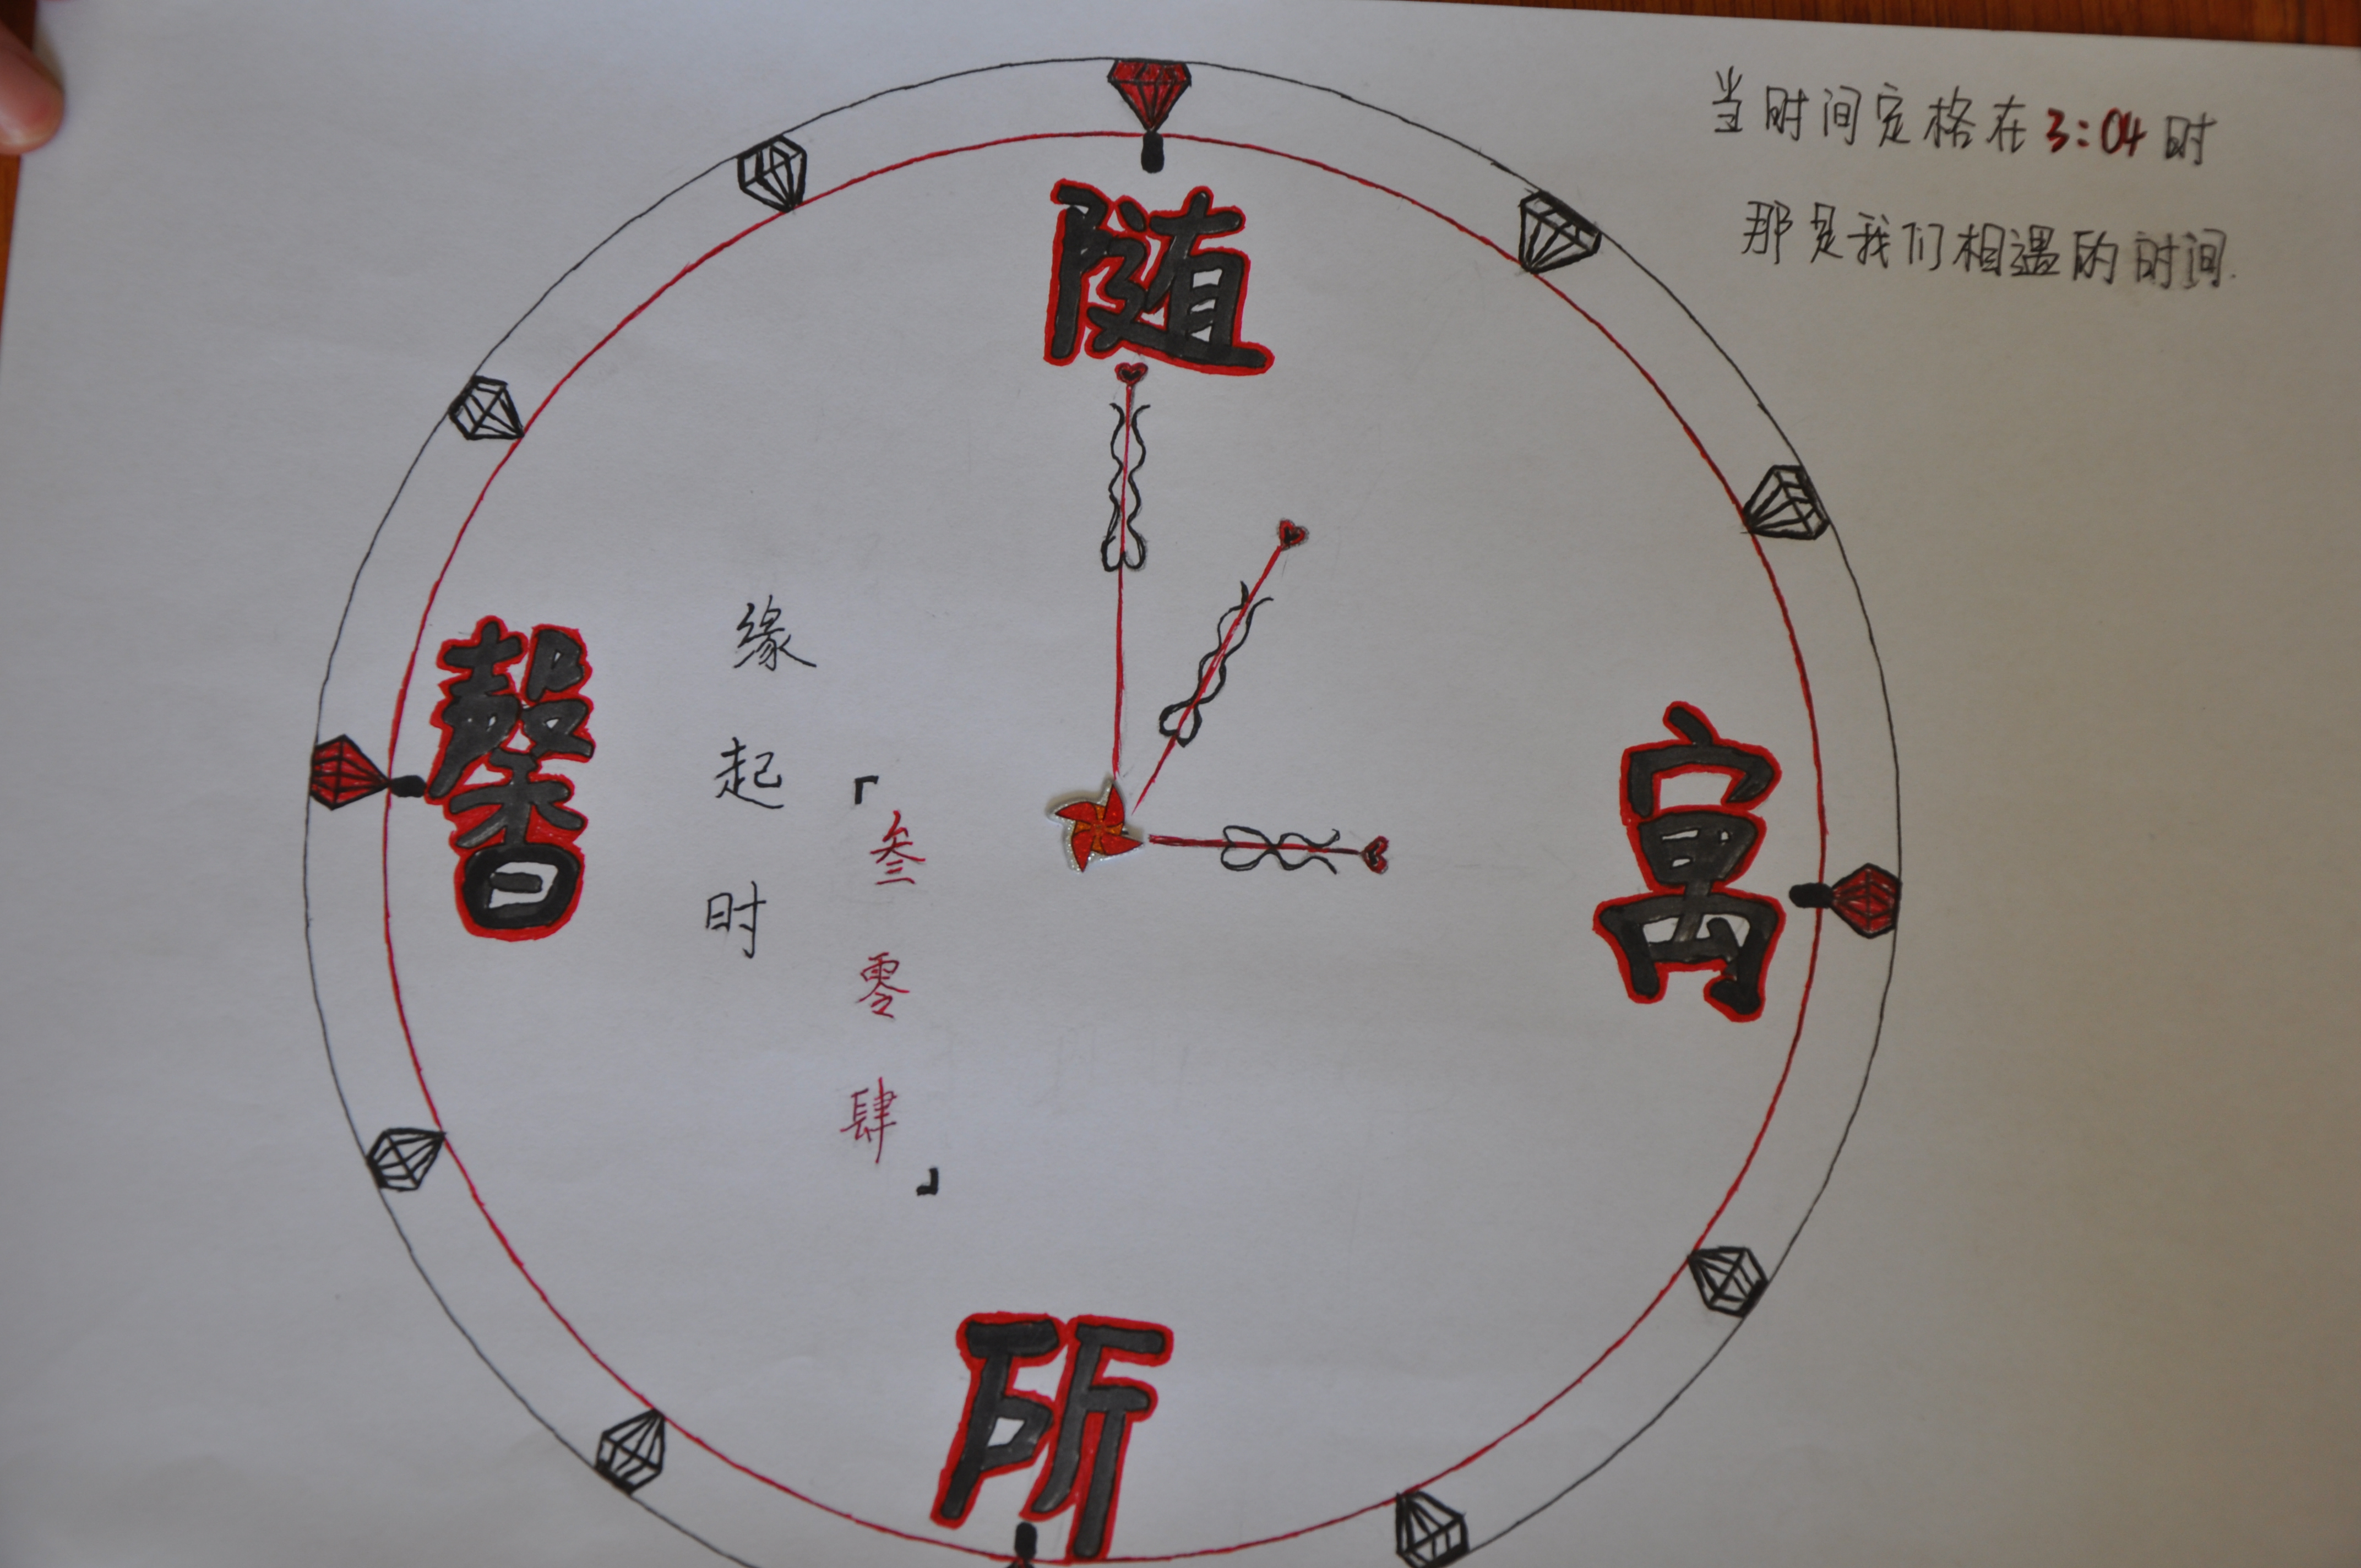 当时间定格在3:04时
那是我们相遇的时间.
随
寓
所
馨
缘起时
「叁零肆」